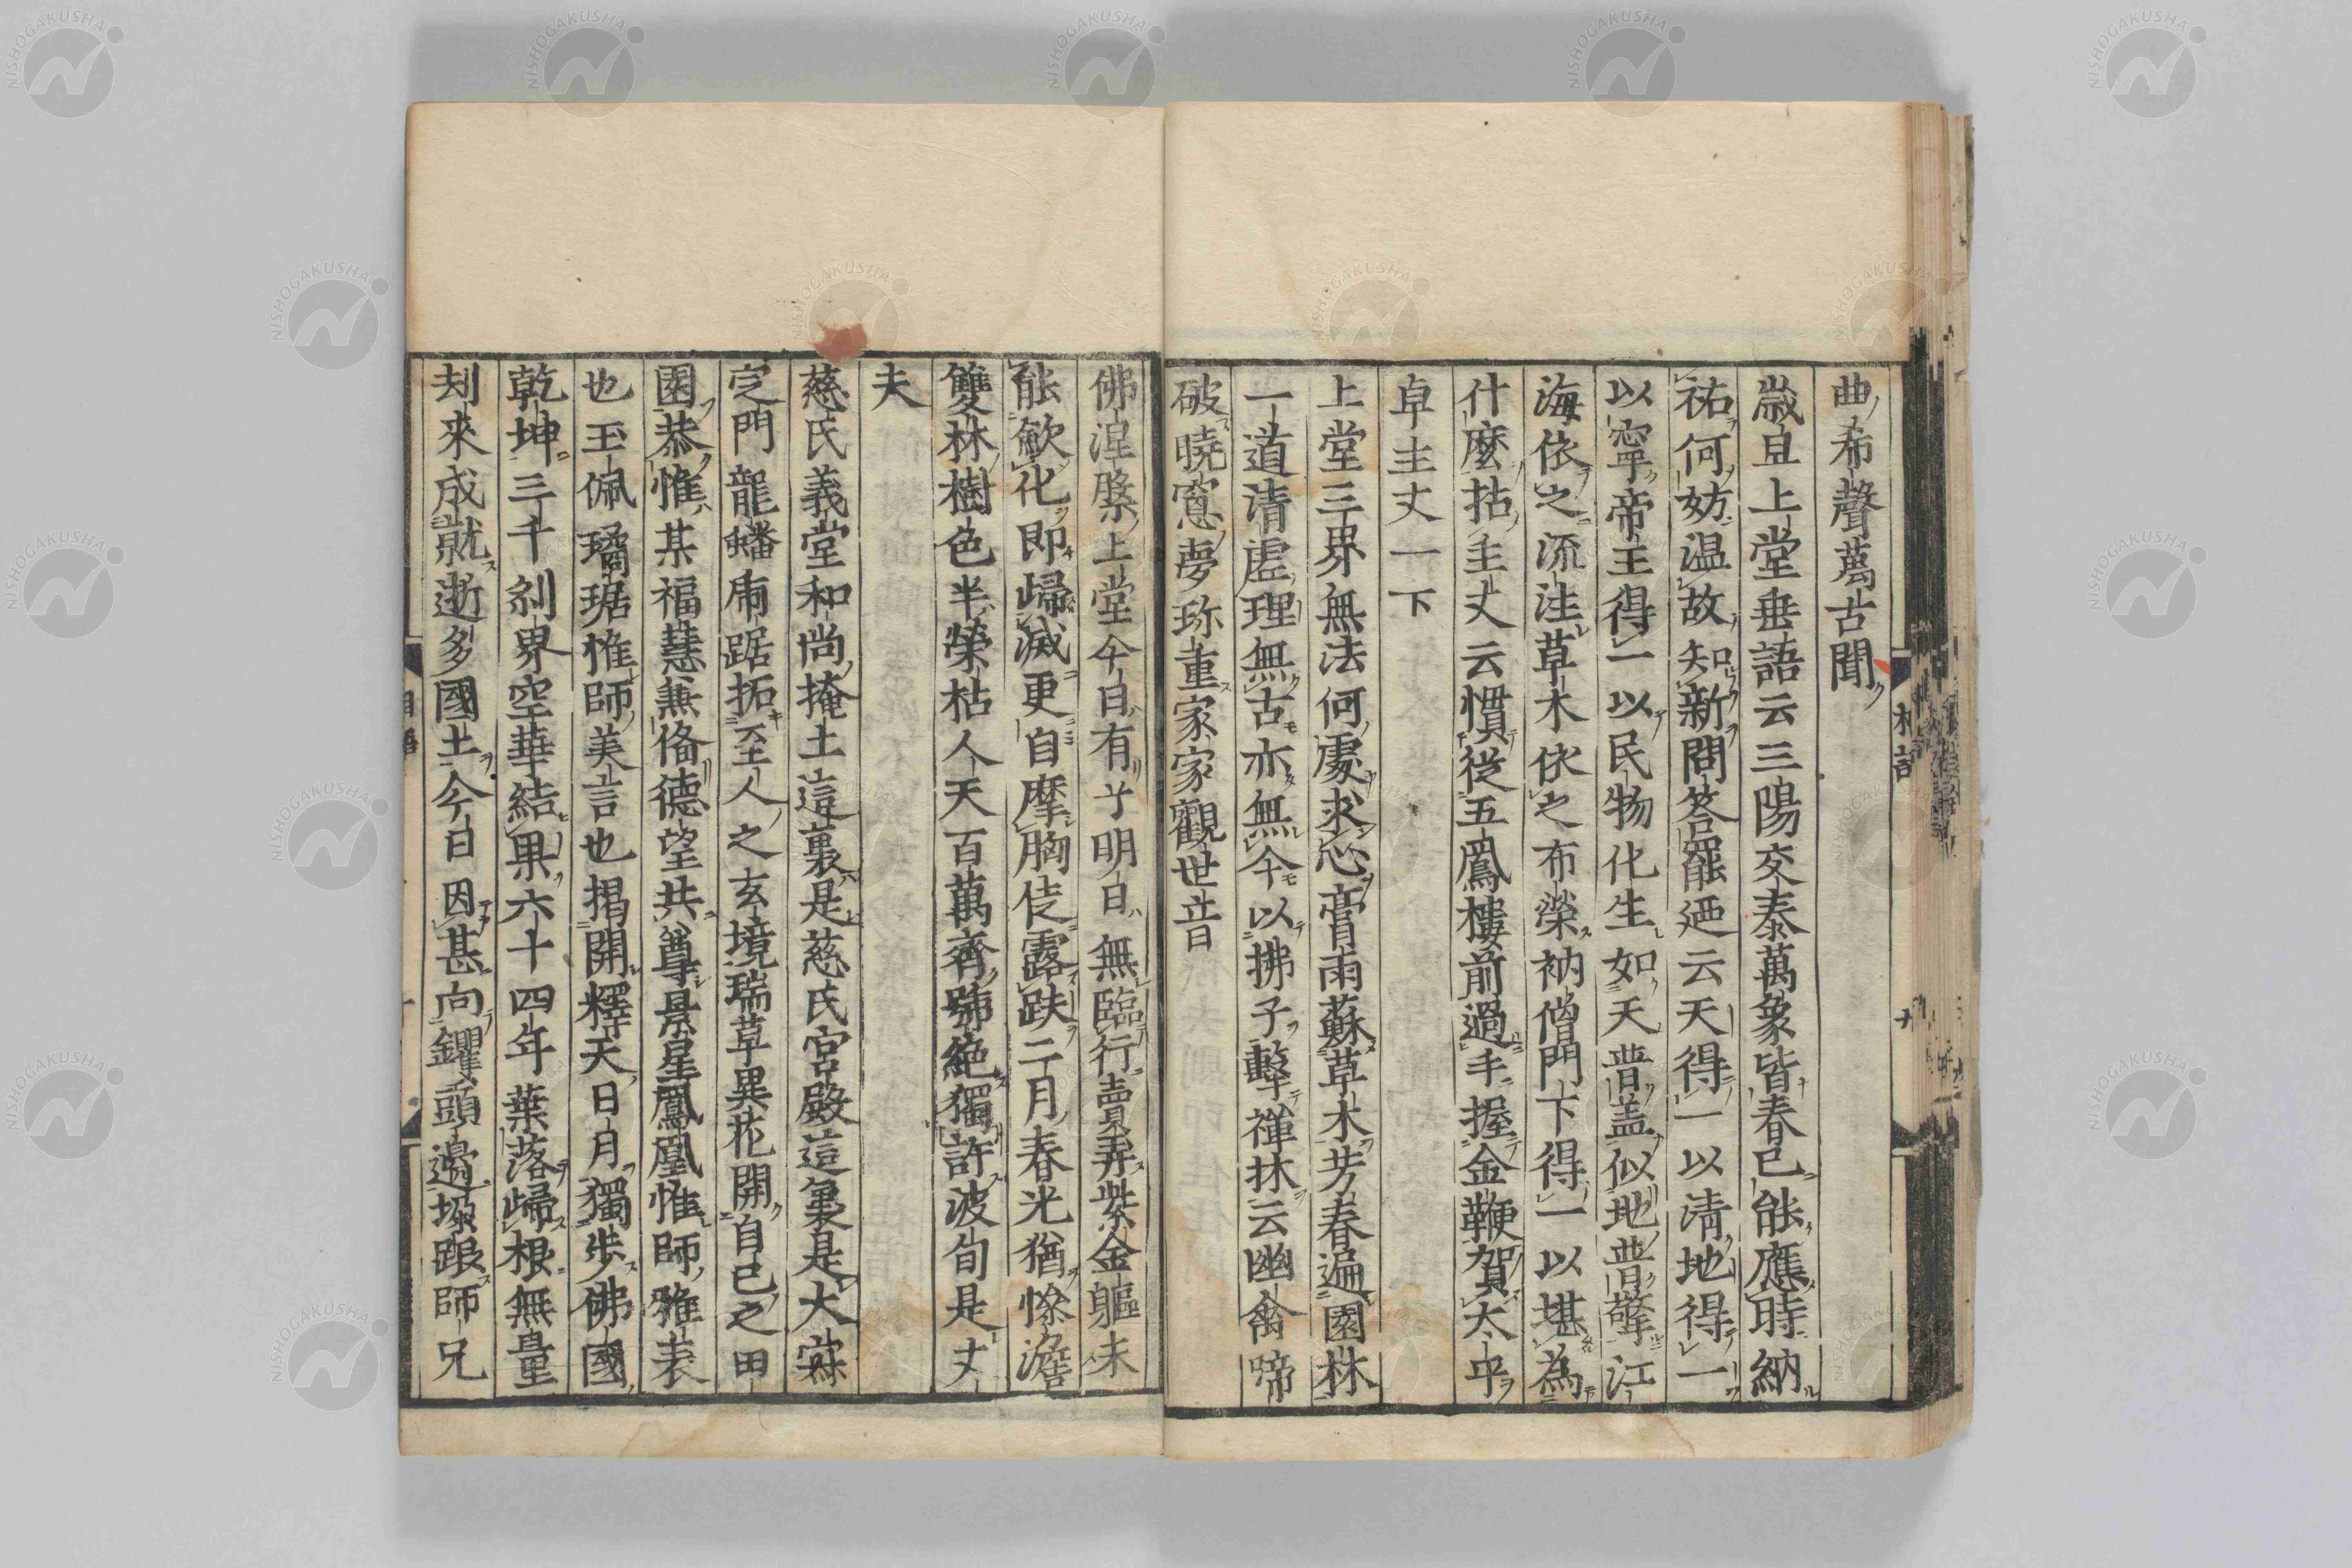 曲希聲萬古聞
歳旦上堂垂語云三陽交泰萬象皆春已能應時納
祐何妨温故知新問答罷迺云天得一以淸地得一
以寧帝王得一以民物化生如天普盖似地普擎江
海依之流注草木依之布榮衲僧門下得一以堪為
什麼拈主丈云慣從五鳳樓前過手握金鞭賀太平
卓主丈一下
上堂三界無法何處求心膏雨蘇草木芳春遍園林
一道清虚理無古亦無今以拂子擊禅牀云幽禽啼
破曉窓夢珎重家家觀世音
佛涅槃上堂今日有兮明日無臨行賣弄紫金軀未
能歛化即歸滅更自摩胸佳露趺二月春光猶慘澹
雙林樹色半榮枯人天百萬齊號絶獨許波旬是丈
夫
慈氏義堂和尚掩土這裏是慈氏宮殿這裏是大寂
定門龍蟠虎踞拓至人之玄境瑞草異花開自己之田
園恭惟某福慧兼俻德望共尊景星鳳凰惟師雅表
也玉佩瓊琚惟師美言也揭開釋天日月獨步佛國
乾坤三千刹界空華結果六十四年葉落歸根無量
刦來成就逝多國土今日因甚向钁頭邊堁跟師兄
NISHOGAKUSHA